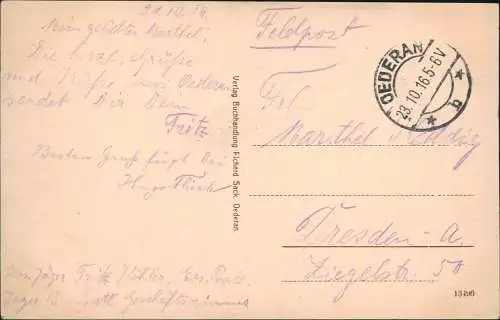 21.10.16.
Mein geliebtes Marthel!
Die herzl. Grüße
und Küsse aus Oederan
sendet Dir Dein
Fritz
Besten Gruß fügt bei
Hugo
Jäger Fritz Köhler, Ers. Batl.
Jäger 13 Geschäftszimmer
Verlag Buchhandlung Richard Sack, Oederan
Feldpost
OEDERAN
23.10.16 5-6 V
* b *
Frl
Marthel
Dresden-A.
Ziegelstr. 50